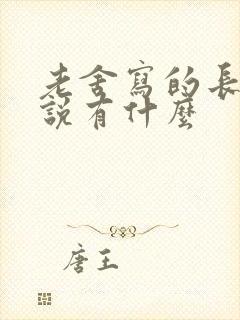 老舍寫的長
說有什麼
唐王